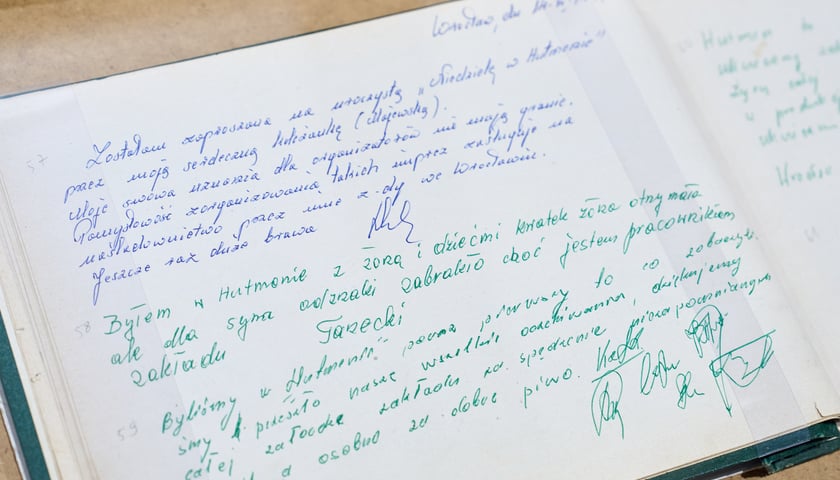 Wrocław, dn.
57
Zostałam zaproszona na uroczystą „Niedzielę w Hutmenie"
przez moją serdeczną koleżankę (Majewską).
Moje słowa uznania dla organizatorów nie mają granic.
Pomysłowość zorganizowania takich imprez zasługuje na
naśladownictwo przez inne z-dy we Wrocławiu.
Jeszcze raz duże brawa
58
Byłem w Hutmenie z żoną i dziećmi kwiatek żona otrzymała
ale dla syna odznaki zabrakło choć jestem pracownikiem
zakładu Tarecki
59
Byliśmy w „Hutmenie" pierwszy to co zobaczyli
śmy przeszło nasze wszelkie oczekiwania, dziękujemy
całej załodze zakładu za spędzenie
a osobno za dobre piwo.
Hutmen